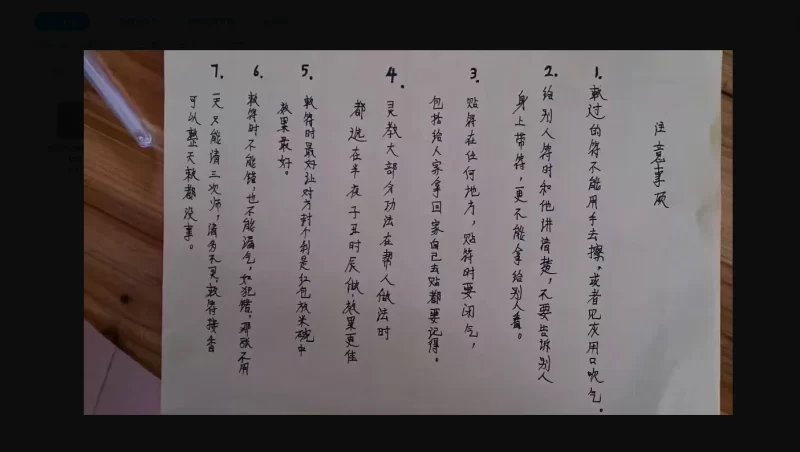 注意事项
1. 敕过的符不能用手去擦。或者见灰用口吹气.
2. 给别人符时和他讲清楚,不要告诉别人
身上带符,更不能拿给别人看。
3. 贴符在任何地方,贴符时要闭气,
包括给人家拿回家自己去贴都要记得。
4. 灵教大部分功法在帮人做法时
都选在半夜子丑时辰做,效果更佳
5. 敕符时最好让对方封个利是红包放米碗中
效果最好。
6. 敕符时不能错,也不能漏气,如犯错,那张不用
7. 一天只能请三次师,请多不灵,敕符接香
可以整天敕都没事。